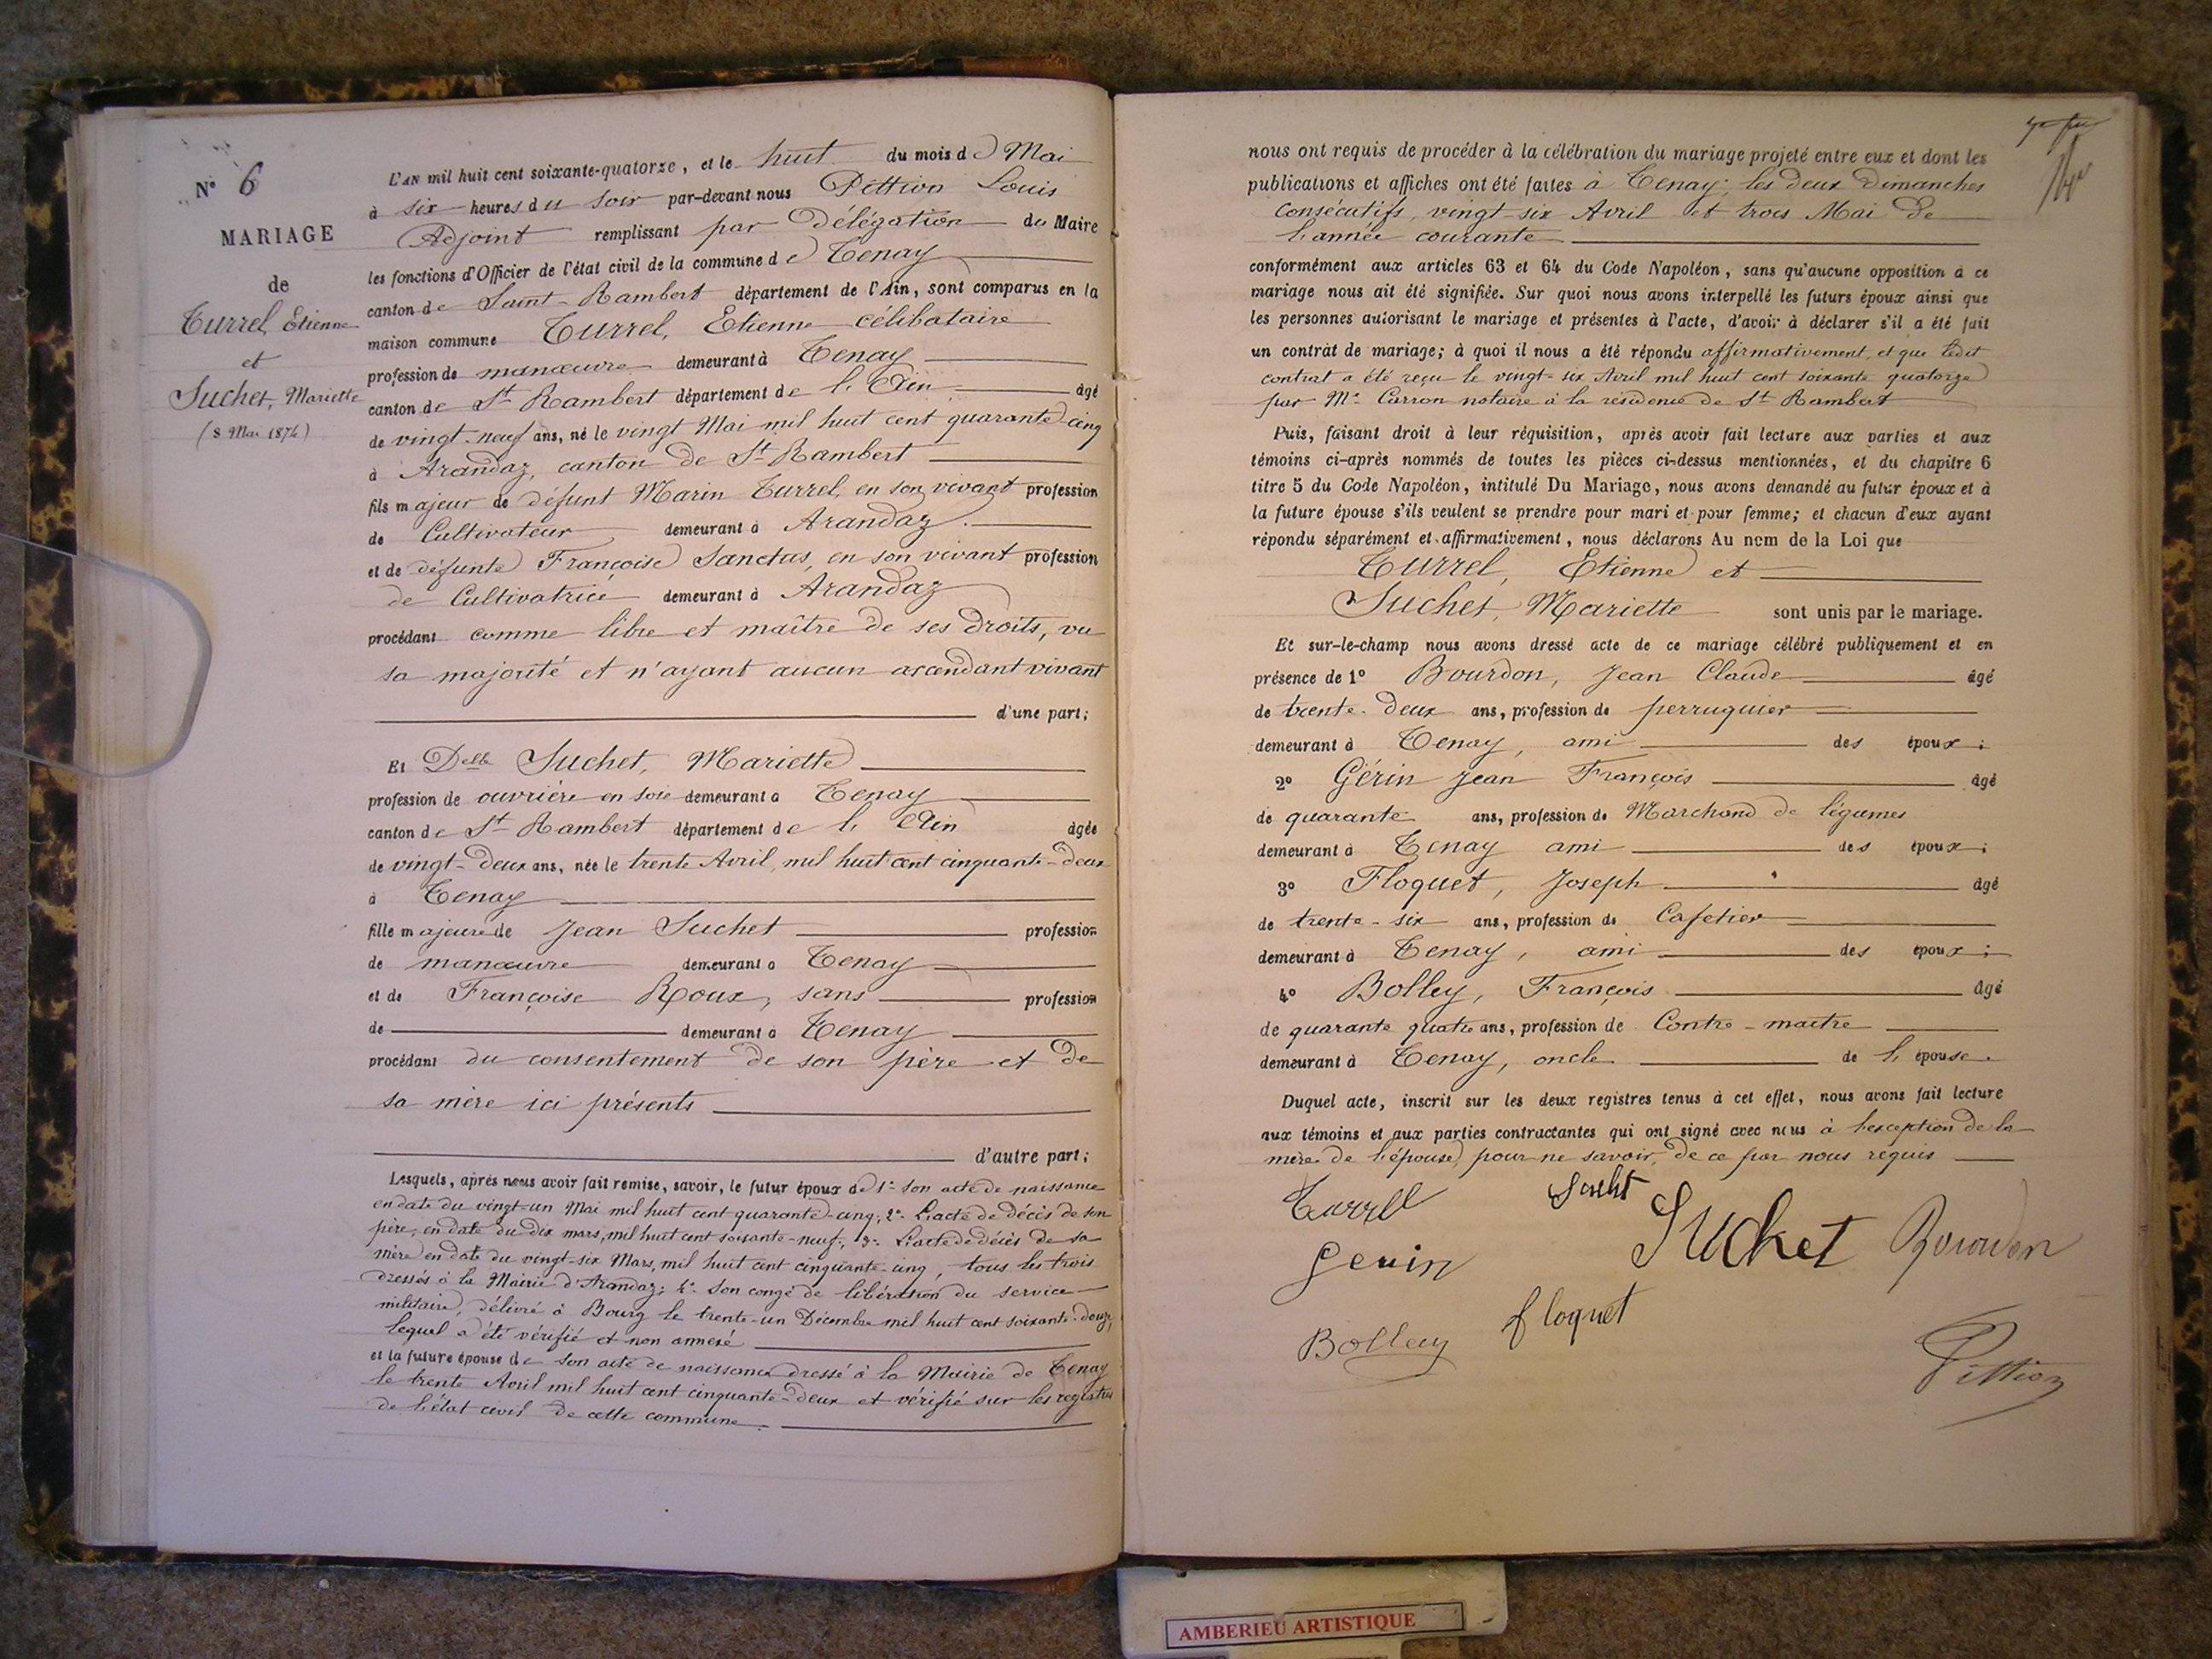 N° 6
MARIAGE
de
Turrel, Etienne
et
Suchet, Mariette
(8 Mai 1874)
L'AN mil huit cent soixante-quatorze, et le huit du mois de Mai
à six heures du soir par-devant nous Pittion Louis
Adjoint remplissant par Délégation du Maire
les fonctions d'Officier de l'état civil de la commune de Tenay
canton de Saint-Rambert département de l'Ain, sont comparus en la
maison commune Turrel, Etienne célibataire
profession de manœuvre demeurant à Tenay
canton de St Rambert département de l'Ain âgé
de vingt-neuf ans, né le vingt Mai mil huit cent quarante-cinq
à Arandaz, canton de St Rambert
fils majeur de défunt Marin Turrel, en son vivant profession
de Cultivateur demeurant à Arandaz.
et de défunte Françoise Sanctus, en son vivant profession
de Cultivatrice demeurant à Arandaz
procédant comme libre et maître de ses droits, vu
sa majorité et n'ayant aucun ascendant vivant
d'une part;
Et Delle Suchet, Mariette
profession de ouvrière en soie demeurant à Tenay
canton de St Rambert département de l'Ain âgée
de vingt-deux ans, née le trente Avril, mil huit cent cinquante-deux
à Tenay
fille majeure de Jean Suchet profession
de manœuvre demeurant à Tenay
et de Françoise Roux, sans profession
de demeurant à Tenay
procédant du consentement de son père et de
sa mère ici présents
d'autre part;
Lesquels, après nous avoir fait remise, savoir, le futur époux de 1° son acte de naissance
en date du vingt-un Mai mil huit cent quarante-cinq; 2° L'acte de décès de son
père, en date du dix mars, mil huit cent soixante-neuf; 3° L'acte de décès de sa
mère en date du vingt-six Mars, mil huit cent cinquante-cinq, tous les trois
dressés à la Mairie d'Arandaz; 4° Son congé de libération du service
militaire, délivré à Bourg le trente-un Décembre mil huit cent soixante-douze,
lequel a été vérifié et non annexé
et la future épouse de son acte de naissance dressé à la Mairie de Tenay
le trente Avril mil huit cent cinquante-deux et vérifié sur les registres
de l'état civil de cette commune
nous ont requis de procéder à la célébration du mariage projeté entre eux et dont les
publications et affiches ont été faites à Tenay; les deux Dimanches
consécutifs, vingt-six Avril et trois Mai de
l'année courante
conformément aux articles 63 et 64 du Code Napoléon, sans qu'aucune opposition à ce
mariage nous ait été signifiée. Sur quoi nous avons interpellé les futurs époux ainsi que
les personnes autorisant le mariage et présentes à l'acte, d'avoir à déclarer s'il a été fait
un contrat de mariage; à quoi il nous a été répondu affirmativement, et que ledit
contrat a été reçu le vingt-six Avril mil huit cent soixante quatorze
par Me Carron notaire à la résidence de St Rambert
Puis, faisant droit à leur réquisition, après avoir fait lecture aux parties et aux
témoins ci-après nommés de toutes les pièces ci-dessus mentionnées, et du chapitre 6
titre 5 du Code Napoléon, intitulé Du Mariage, nous avons demandé au futur époux et à
la future épouse s'ils veulent se prendre pour mari et pour femme; et chacun d'eux ayant
répondu séparément et affirmativement, nous déclarons Au nom de la Loi que
Turrel, Etienne et
Suchet, Mariette sont unis par le mariage.
Et sur-le-champ nous avons dressé acte de ce mariage célébré publiquement et en
présence de 1° Bourdon, Jean Claude âgé
de trente-deux ans, profession de perruquier
demeurant à Tenay, ami des époux;
2° Gérin Jean François âgé
de quarante ans, profession de Marchand de légumes
demeurant à Tenay ami des époux;
3° Floquet, Joseph âgé
de trente-six ans, profession de Cafetier
demeurant à Tenay, ami des époux;
4° Bolley, François âgé
de quarante quatre ans, profession de Contre-maître
demeurant à Tenay, oncle de l'épouse.
Duquel acte, inscrit sur les deux registres tenus à cet effet, nous avons fait lecture
aux témoins et aux parties contractantes qui ont signé avec nous à l'exception de la
mère de l'épouse, pour ne savoir, de ce par nous requis
Turrel
Suchet
Suchet
Bourdon
Gerin
floquet
Bolley
Pittion
AMBERIEU ARTISTIQUE